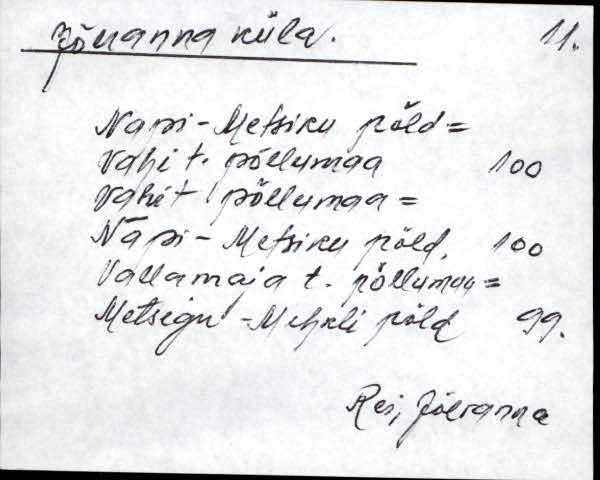 Jõeranna küla. 11.
Napi-Metsiku põld =
Vahi t. põllumaa 100
Vahi t põllumaa =
Napi - Metsiku põld. 100
Vallamaja t. põllumaa =
Metsegu - Mihkli põld 99.
Rei, Jõeranna